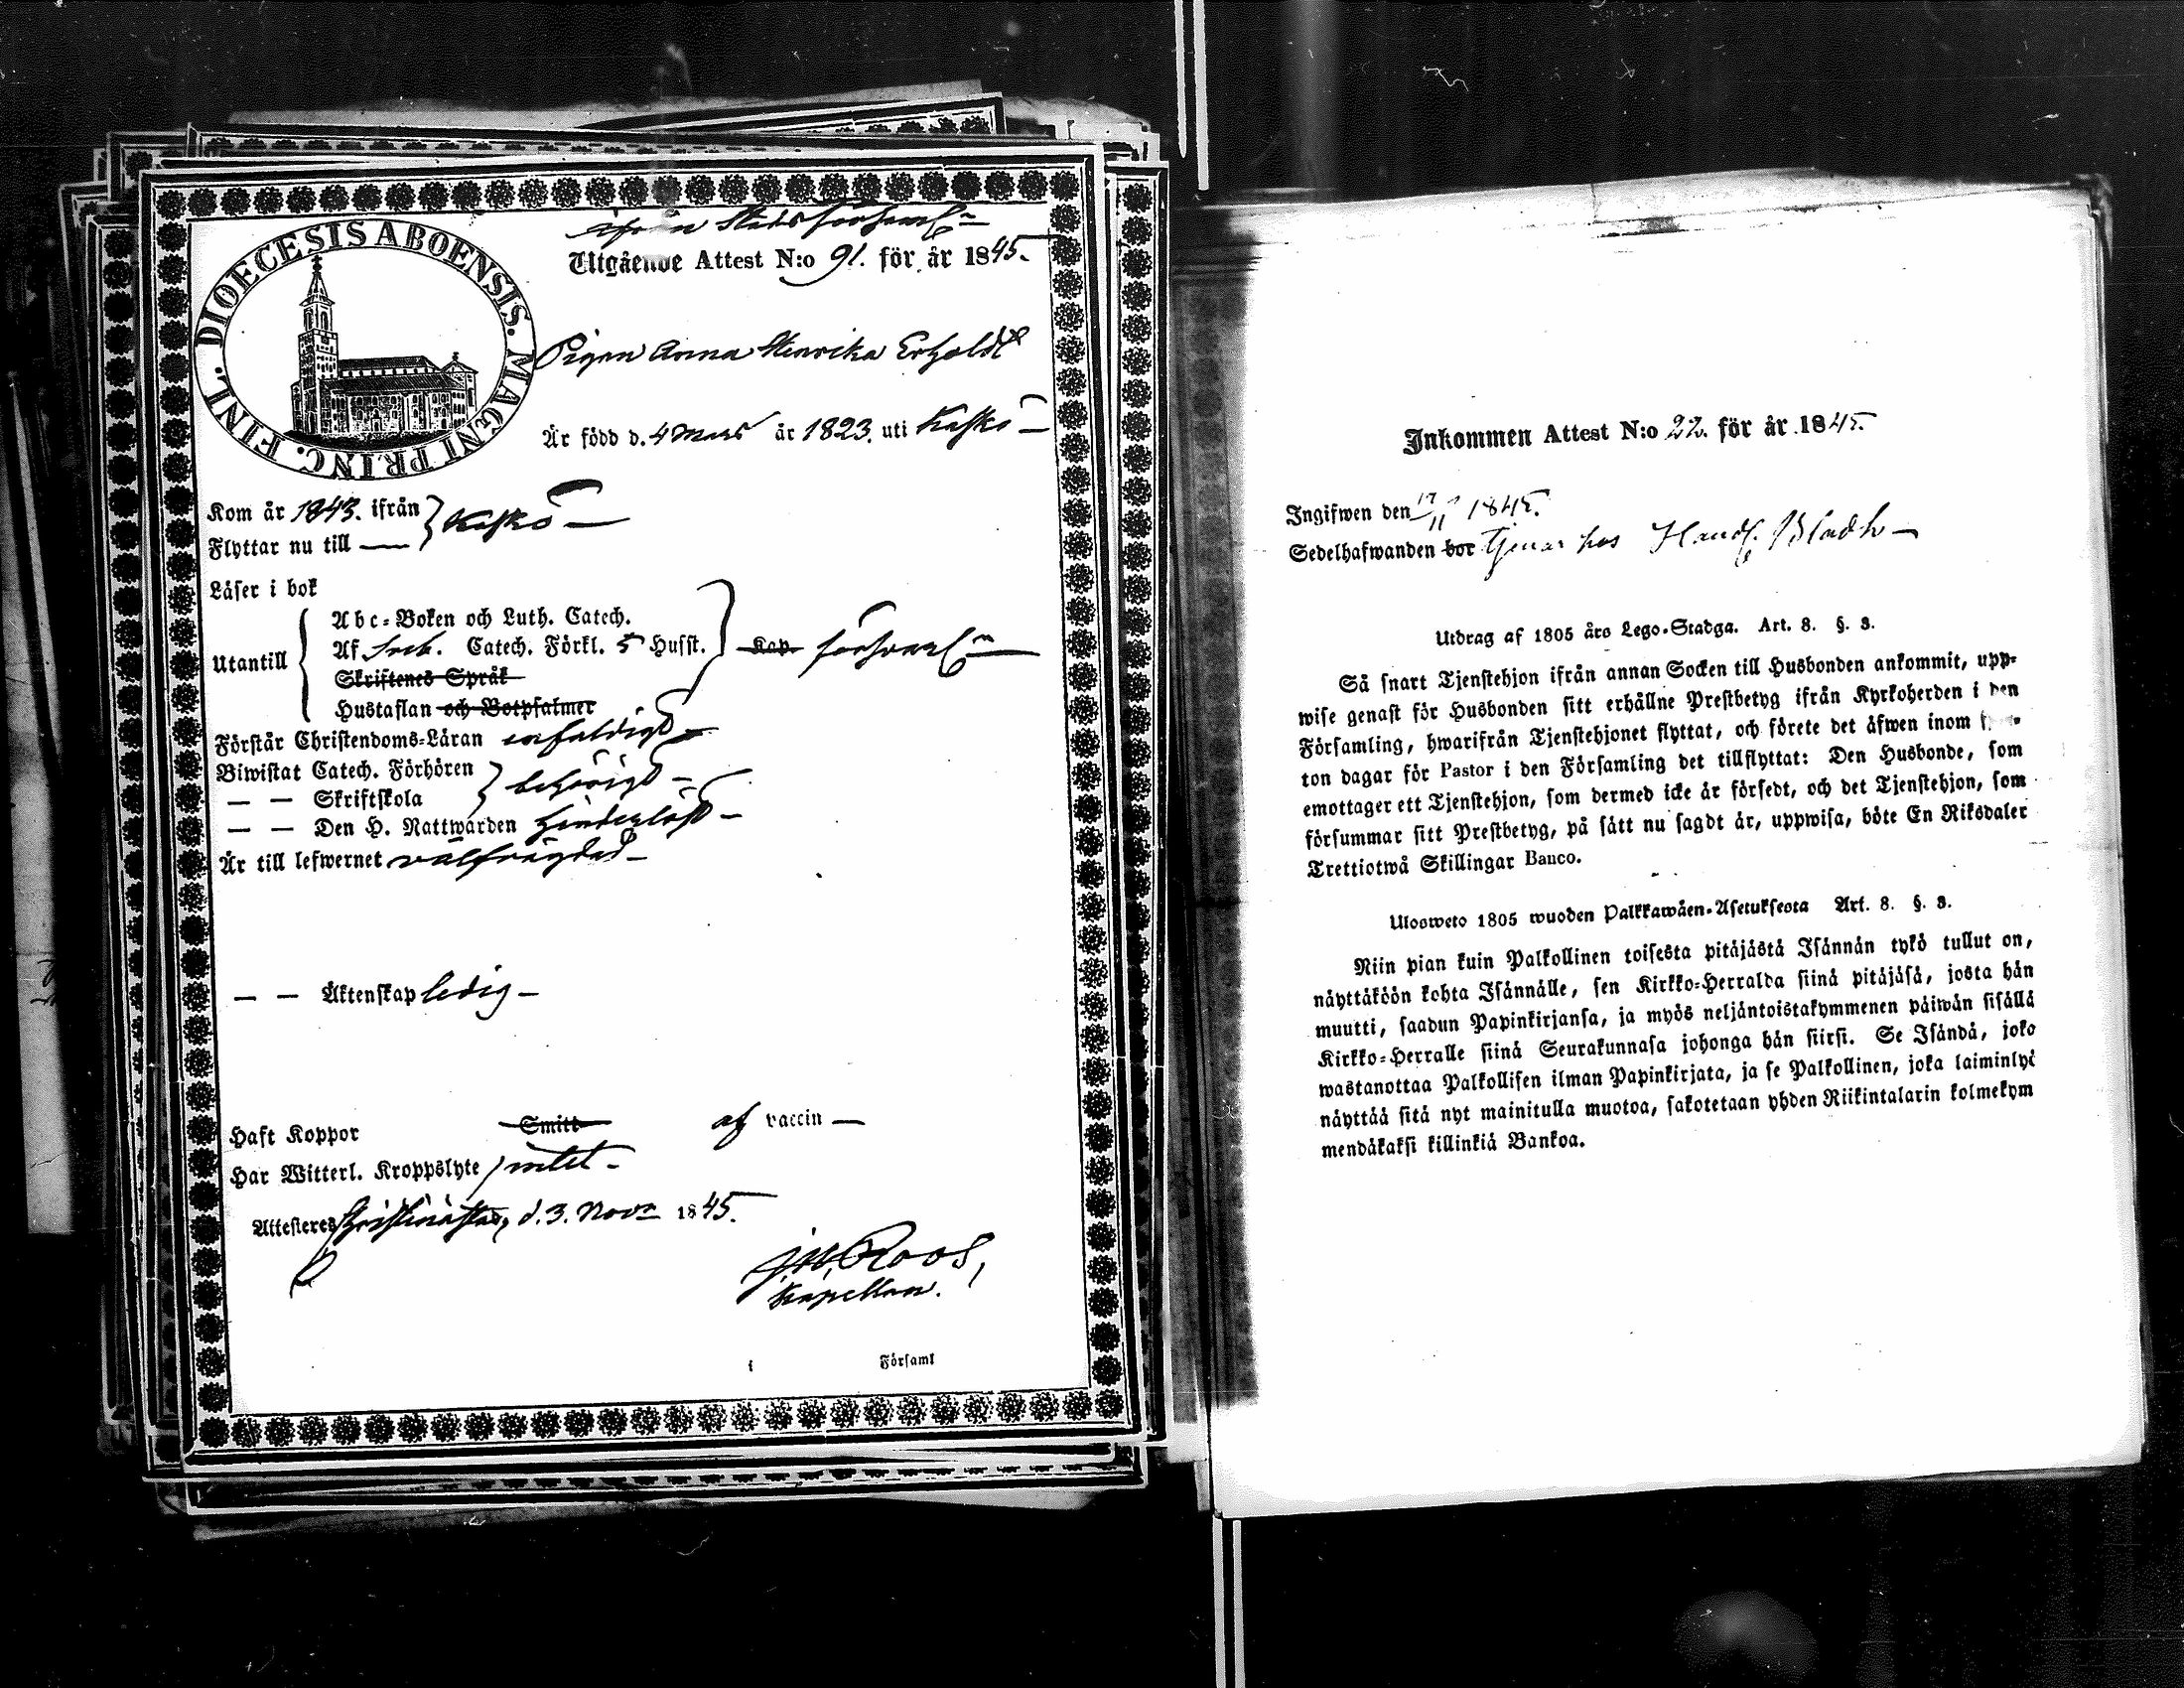 DIOECESIS ABOENSIS. MAGNI PRINC. FINL.
ifrån Stads församl
Utgående Attest N:o 91. för år 1845.
Pigan Anna Henrika Erholdt
Är född d. 4 Mars år 1823. uti Kaskö
Kom år 1843. ifrån } Kaskö
Flyttar nu till
Läser i bok
Utantill
Abc-Boken och Luth. Catech.
Af Sveb. Catech. Förkl. 5 Husst. Kap. försvarl
Skriftenes Språk
Hustaflan och Botpsalmer
Förstår Christendoms-Läran enfaldigt
Biwistat Catech. Förhören } behörigt
— — Skriftskola
— — Den H. Nattwarden hinderlöst
Är till lefwernet välfrägdad
— — Äktenskap ledig
Haft Koppor Smitt af vaccin
Har Witterl. Kroppslyte intet
Attesteres Christinæstad, d. 3. Nov. 1845.
J. W. Roos,
Kapellan.
i Församl
Inkommen Attest N:o 22. för år 1845.
Ingifwen den 17/11 1845.
Sedelhafwanden bor tjenar hos Handl. Bladh
Utdrag af 1805 års Lego-Stadga. Art. 8. §. 3.
Så snart Tjenstehjon ifrån annan Socken till Husbonden ankommit, upp-
wise genast för Husbonden sitt erhållne Prestbetyg ifrån Kyrkoherden i den
Församling, hwarifrån Tjenstehjonet flyttat, och förete det äfwen inom
ton dagar för Pastor i den Församling det tillflyttat: Den Husbonde, som
emottager ett Tjenstehjon, som dermed icke är försedt, och det Tjenstehjon, som
försummar sitt Prestbetyg, på sätt nu sagdt är, uppwisa, böte En Riksdaler
Trettiotwå Skillingar Banco.
Ulosweto 1805 wuoden Palkkawäen-Asetuksesta Art. 8. §. 3.
Niin pian kuin Palkollinen toisesta pitäjästä Isännän tykö tullut on,
näyttäköön kohta Isännälle, sen Kirkko-Herralda siinä pitäjäsä, josta hän
muutti, saadun Papinkirjansa, ja myös neljäntoistakymmenen päiwän sisällä
Kirkko-Herralle siinä Seurakunnasa johonga hän siirsi. Se Isändä, joko
wastanottaa Palkollisen ilman Papinkirjata, ja se Palkollinen, joka laiminlyö
näyttää sitä nyt mainitulla muotoa, sakotetaan yhden Riikintalarin kolmekym
mendäkaksi killinkiä Bankoa.